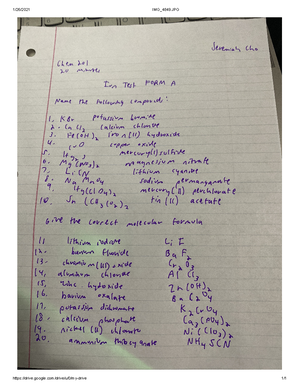 1/26/2021
IMG_4848.JPG
Jeremiah Cho
Chem 201
20 minutes
Ion Test FORM A
Name the following compounds:
1. KBr potassium bromide
2. CaCl2 calcium chloride
3. Fe(OH)2 iron (II) hydroxide
4. copper oxide
5. mercury(I) sulfide
6. Mg(NO3)2 magnesium nitrate
7. LiCN lithium cyanide
8. NaMnO4 sodium permanganate
9. Hg(ClO4)2 mercury (II) perchlorate
10. Sn(C2H3O2)2 tin (II) acetate
Give the correct molecular formula
11. lithium iodide LiI
12. barium fluoride BaF2
13. chromium (III) oxide Cr2O3
14. aluminum chloride AlCl3
15. zinc hydroxide Zn(OH)2
16. barium oxalate BaC2O4
17. potassium dichromate
18. calcium phosphate Ca3(PO4)2
19. nickel (II) chlorate Ni(ClO3)2
20. ammonium thiocyanate NH4SCN
1/1